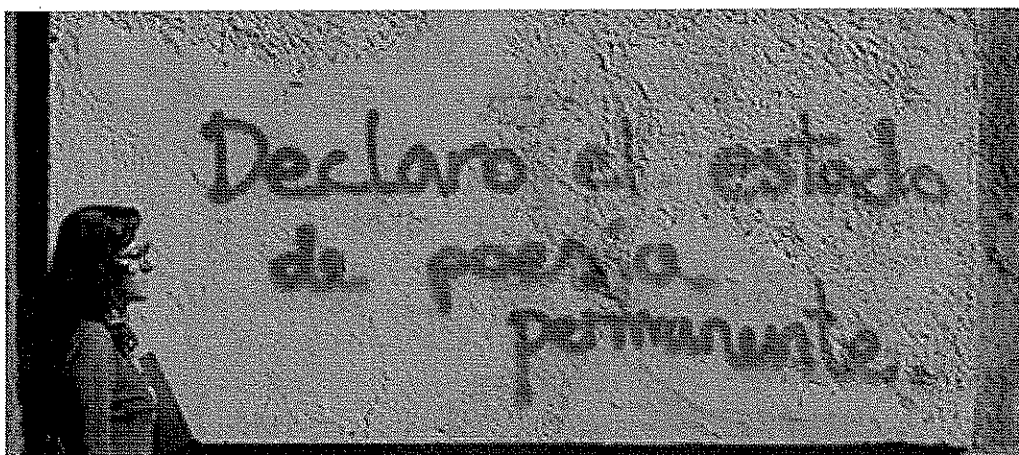 Declaro el estado
de poesía
permanente.